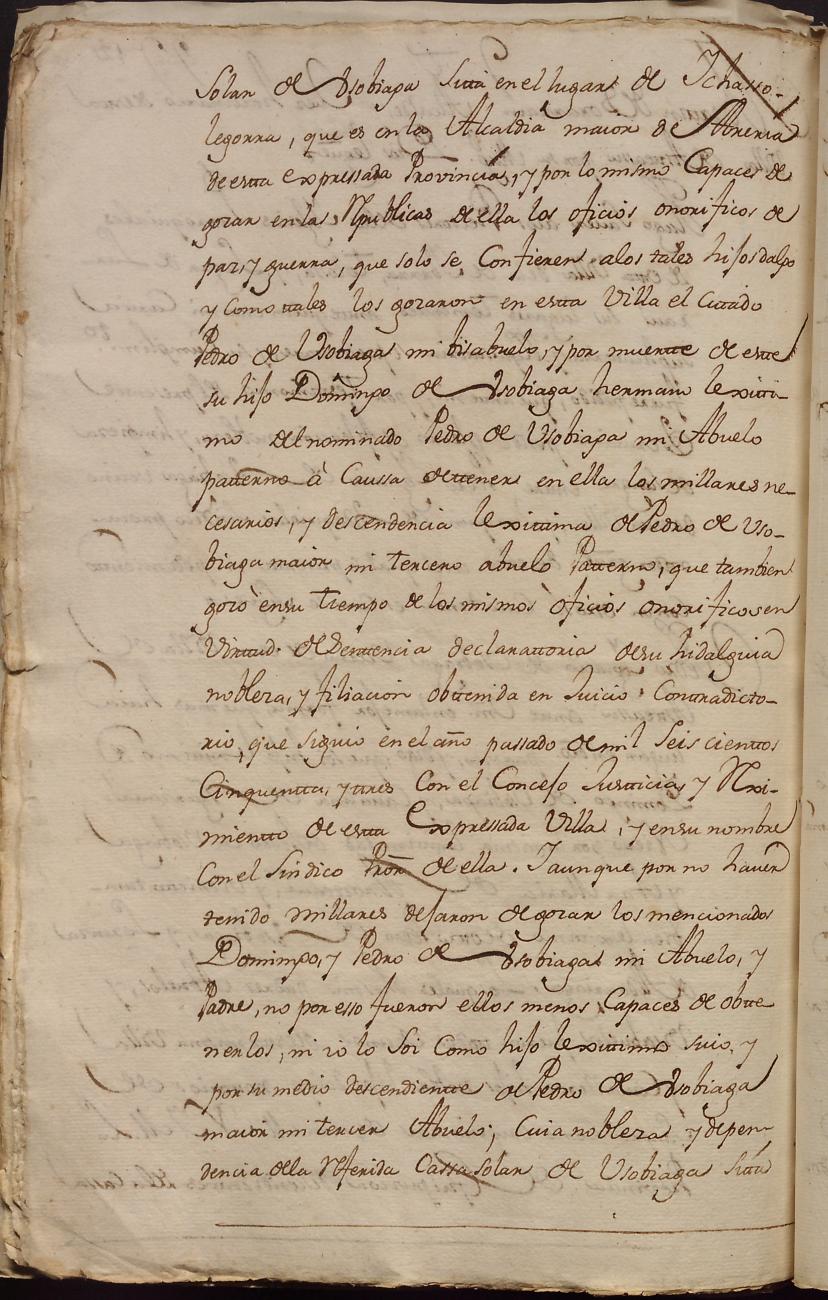 Solar de Usobiaga sitta en el lugar de Ichasso-
legorra, que es en la Alcaldia maior de Areria
de esta expressada Provincia, y por lo mismo Capaces de
gozar en las Republicas de ella los oficios onorificos de
paz, y guerra, que solo se Confieren alos tales hijosdalgo
y como tales los gozaron en esta Villa el Cittado
Pedro de Usobiaga mi bisabuelo, y por muerte de este
su hijo Domingo de Usobiaga hermano lexitti-
mo del nominado Pedro de Usobiaga mi Abuelo
patterno à Caussa de ttener en ella los millares ne-
cesarios, y descendencia lexittima de Pedro de Uso-
biaga maior mi tercero abuelo Patterno, que tambien
gozò en su tiempo de los mismos oficios onorificos en
Virttud de Senttencia declarattoria de su hidalguia
nobleza, y filiacion obttenida en Juicio Conttradicto-
rio, que siguio en el año passado de mil Seiscienttos
Cinquentta, y ttres Con el Concejo Justticia, y Rexi-
mientto de estta Expressada Villa, y en su nombre
Con el Sindico Pror de ella. Y aunque por no haver
tenido millares dejaron de gozar los mencionados
Domingo, y Pedro de Usobiaga mi Abuelo, y
Padre, no por esso fueron ellos menos Capaces de obtte-
nerlos, ni io lo Soi Como hijo lexittimo suio, y
por su medio descendientte de Pedro de Usobiaga
maior mi tercer Abuelo; Cuia nobleza y depen-
dencia de la Referida Cassa Solar de Usobiaga sitta